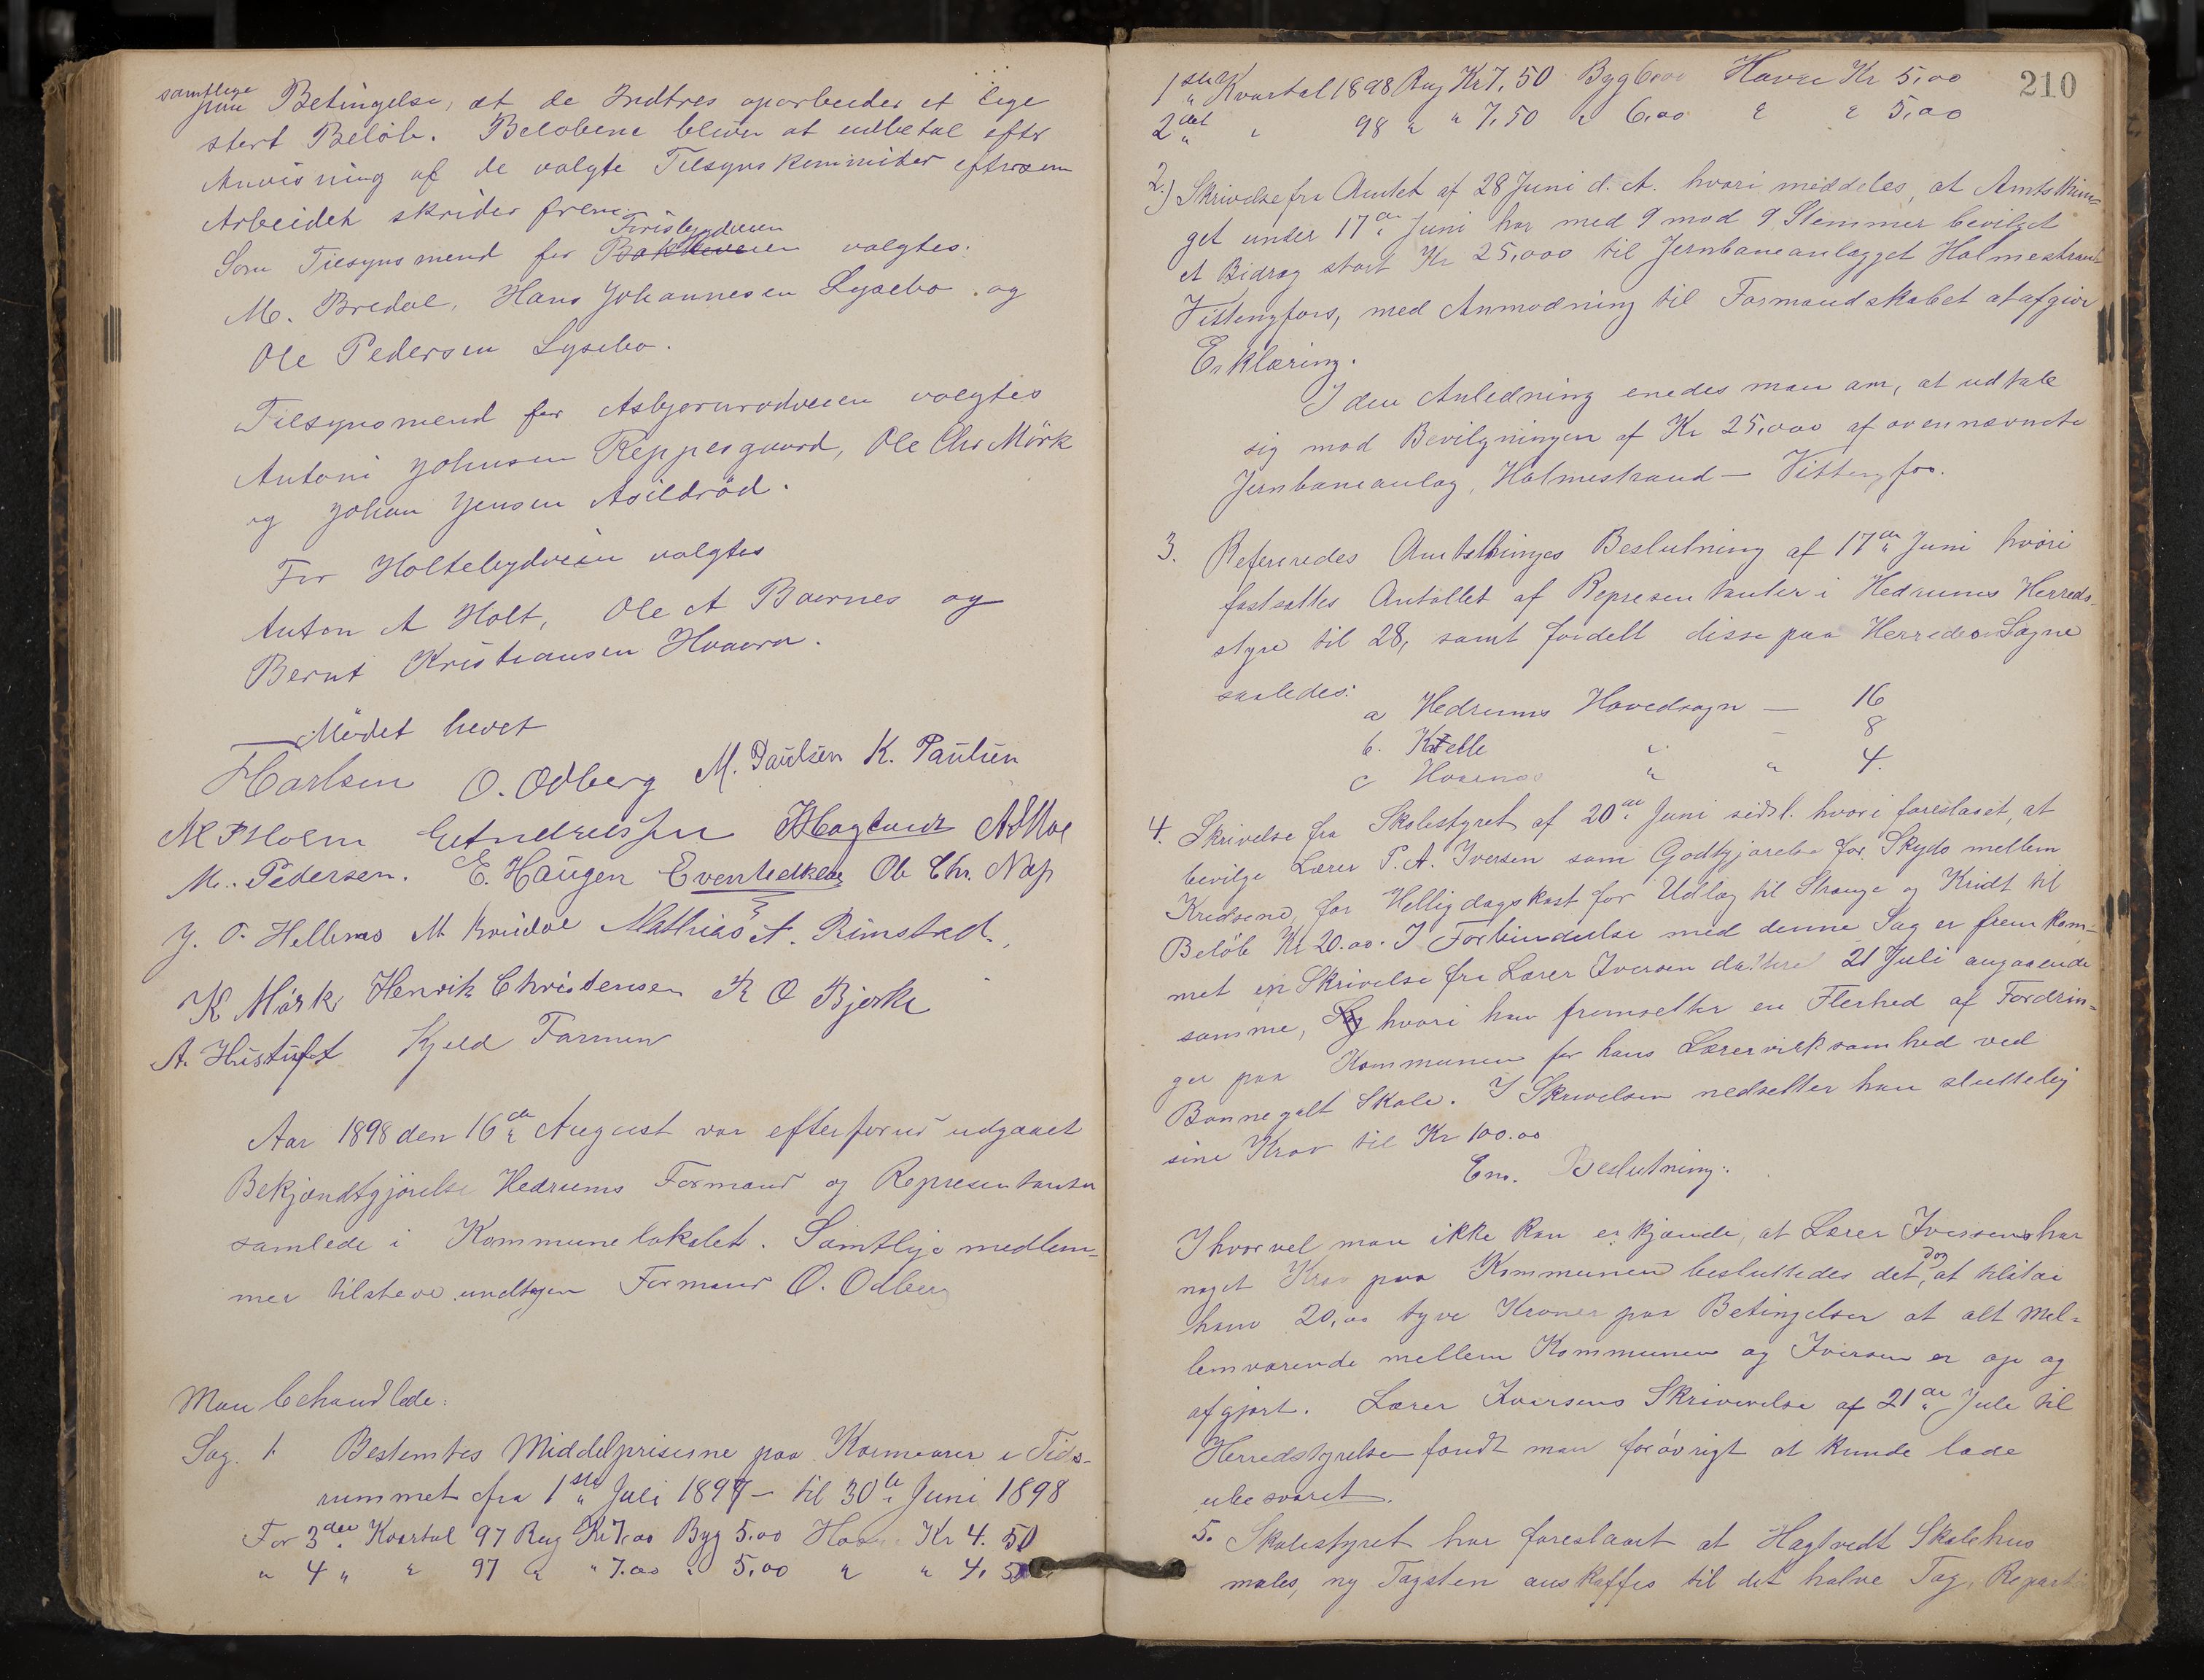 samtlige
paa Betingelse, at de Indtres oparbeider et lige
stort Beløb. Beløbene bliver at udbetale efter
Anvisning af de valgte Tilsynskomiteer eftersom
Arbeidet skrider frem.
Som Tilsynsmend for valgtes.
M. Bredal, Hans Johannesen Lysebo og
Ole Pedersen Lysebo.
Tilsynsmend for Asbjørnrødveien valgtes
Antoni Johnsen Reppesgaard, Ole Chr Mørk
og Johan Jensen Askildrød.
For Holtebygdveien valgtes
Anton A Holt, Ole A Bærnes og
Bernt Kristiansen Haavra.
Mødet hævet
FCarlsen O. Odberg M. Paulsen K. Paulsen
M P Holm E Andreassen Haglund A Moe
M. Pedersen. E. Haugen Even Hedkløv Ole Chr. Næs
J. O. Hellenes M Bredal Mathias A. Rimstad.
K Mørk Henrik Christensen K O Bjerke
A. Hustuft Kjeld Farmen
Aar 1898 den 16de August var efter forud udgaaet
Bekjendtgjørelse Hedrums Formænd og Representanter
samlede i Kommunelokalet. Samtlige medlem-
mer tilstede undtagen Formand O. Odberg
Man behandlede:
Sag. 1. Bestemtes Middelpriserne paa Kornvarer i Tids-
rummet fra 1ste Juli 1897 – til 30te Juni 1898
For 3die Kvartal 97 Rug Kr 7,00 Byg 5.00 Havre Kr 4.50
" 4 " " 97 " " 7.00 " 5,00 " " 4,50
210
1ste Kvartal 1898 Rug Kr 7,50 Byg 6,00 Havre Kr 5,00
2det " 98 " " 7,50 " 6,00 " " 5,00
2.) Skrivelse fra Amtet af 28 Juni d. A. hvori meddeles, at Amtsthin-
get under 17de Juni har med 9 mod 9 Stemmer bevilget
et Bidrag stort Kr 25,000 til Jernbaneanlægget Holmestrand
Vittingfos, med Anmodning til Formandskabet at afgive
Erklæring.
I den Anledning enedes man om, at udtale
sig mod Bevilgningen af Kr 25,000 af ovennævnte
Jernbaneanlæg, Holmestrand – Vittingfos.
3. Refereredes Amtsthinges Beslutning af 17de Juni hvori
fastsattes Antallet af Representanter i Hedrums Herreds-
styre til 28, samt fordelt disse paa Herredets Sogne
saaledes:
a Hedrums Hovedsogn — 16
b. Kvelle " – 8
c Hvarnes " " 4.
4. Skrivelse fra Skolestyret af 20de Juni sidstl. hvori foreslaaet, at
bevilge Lærer P. A. Iversen som Godtgjørelse for Skyds mellem
Kredsene, for Helligdagskost for Udlæg til Strenge og Kridt til
Beløb Kr 20.00. I Forbindelse med denne Sag er fremkom-
met en Skrivelse fra Lærer Iversen datteret 21 Juli angaaende
samme, hvori han fremsetter en Flerhed af Fordrin-
ger paa Kommunen for hans Lærervirksomhed ved
Bonnegalt Skole. I Skrivelsen nedsetter han sluttelig
sine Krav til Kr 100.00
Ens. Beslutning:
Ihvorvel man ikke kan erkjende, at Lærer Iversen har
noget Krav paa Kommunen besluttedes det dog, at tilstaa
ham 20,00 tyve Kroner paa Betingelser at alt Mel-
lemværende mellem Kommunen og Iversen er op og
afgjort. Lærer Iversens Skrivelse af 21de Juli til
Herredstyrelsen fandt man forøvrigt at kunde lade
ubesvaret.
5. Skolestyret har foreslaaet at Hagtvedt Skolehus
males, ny Tagsten anskaffes til det halve Tag,